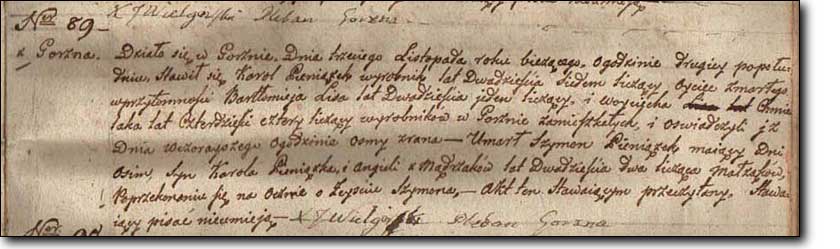 X J Wielgórski Pleban Gorzna
Ner 89
z Gorzna. Działo się w Gorznie. Dnia trzeciego Listopada roku bieżącego. Ogodzinie drugiey popołu-
dniu. Stawił się Karol Pieniązek wyrobnik lat Dwadzieścia siedem liczący Oyciec zmarłego
wprzytomności Bartłomieja Lisa lat Dwadzieścia jeden liczący, i woyciecha Chmie
laka lat Czterdzieści cztery liczący wyrobników w Gorznie zamieszkałych, i oswiadczyli iż
Dnia wczorayszego Ogodzinie osmy zrana — Umarł Szymon Pieniązek maiący Dni
Osim, Syn Karola Pieniązka, i Angieli z Mądrzaków lat Dwadzieścia dwa licząca małżąków,
Poprzekonaniu się na Ocznie o Zeyściu Szymona, — Akt ten Stawaiącym przeczytany. Stawa
iący pisać nieumieją — X J Wielgórski Pleban Gorzna
Ner 90